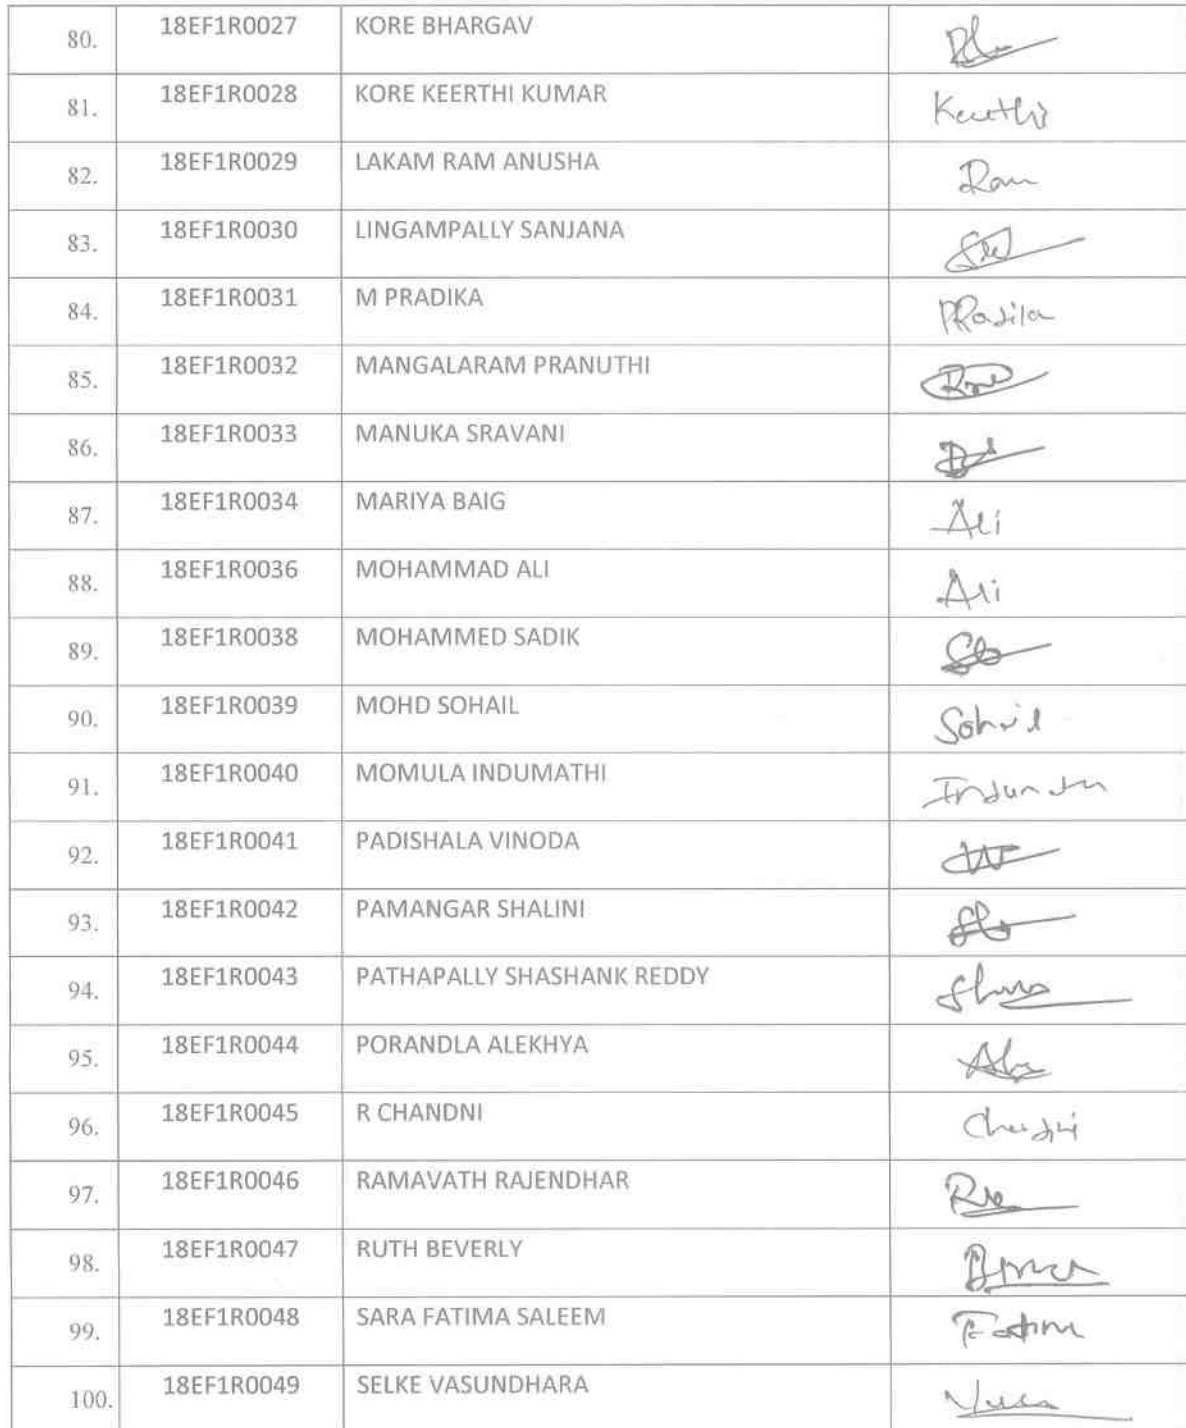 80. 18EF1R0027 KORE BHARGAV
81. 18EF1R0028 KORE KEERTHI KUMAR Keerthi
82. 18EF1R0029 LAKAM RAM ANUSHA Ram
83. 18EF1R0030 LINGAMPALLY SANJANA
84. 18EF1R0031 M PRADIKA
85. 18EF1R0032 MANGALARAM PRANUTHI
86. 18EF1R0033 MANUKA SRAVANI
87. 18EF1R0034 MARIYA BAIG Ali
88. 18EF1R0036 MOHAMMAD ALI Ali
89. 18EF1R0038 MOHAMMED SADIK
90. 18EF1R0039 MOHD SOHAIL Sohail
91. 18EF1R0040 MOMULA INDUMATHI
92. 18EF1R0041 PADISHALA VINODA
93. 18EF1R0042 PAMANGAR SHALINI
94. 18EF1R0043 PATHAPALLY SHASHANK REDDY
95. 18EF1R0044 PORANDLA ALEKHYA
96. 18EF1R0045 R CHANDNI
97. 18EF1R0046 RAMAVATH RAJENDHAR
98. 18EF1R0047 RUTH BEVERLY
99. 18EF1R0048 SARA FATIMA SALEEM
100. 18EF1R0049 SELKE VASUNDHARA